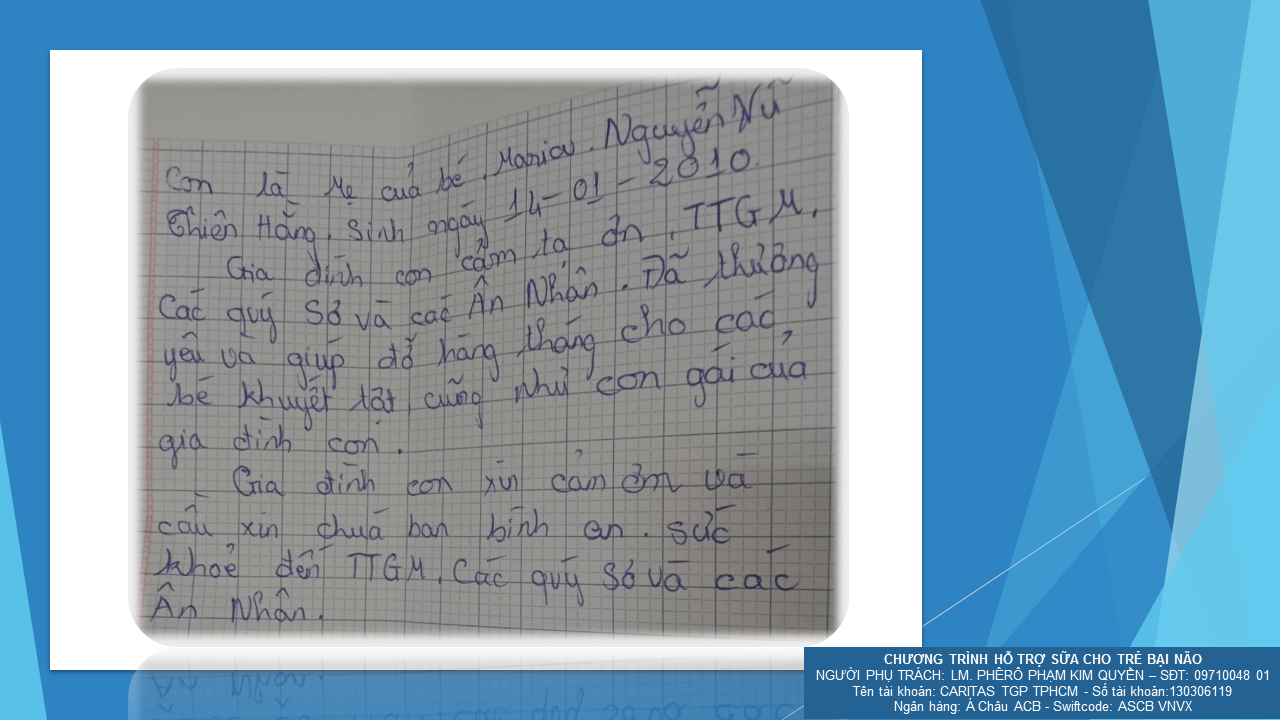 Con là Mẹ cuả bé. Maria. Nguyễn Nữ
Thiên Hằng. Sinh ngày 14-01-2010.
Gia đình con cảm tạ ơn. TTGM.
Các quý Sơ và các Ân Nhân. Đã thương
yêu và giúp đỡ hàng tháng cho các
bé khuyết tật, cũng như con gái của
gia đình con.
Gia đình con xin cảm ơm và
cầu xin chuá ban bình an. sức
khoẻ đến TTGM. Các quý Sơ và các
Ân Nhân.
CHƯƠNG TRÌNH HỖ TRỢ SỮA CHO TRẺ BẠI NÃO
NGƯỜI PHỤ TRÁCH: LM. PHÊRÔ PHẠM KIM QUYỀN – SĐT: 09710048 01
Tên tài khoản: CARITAS TGP TPHCM - Số tài khoản:130306119
Ngân hàng: Á Châu ACB - Swiftcode: ASCB VNVX